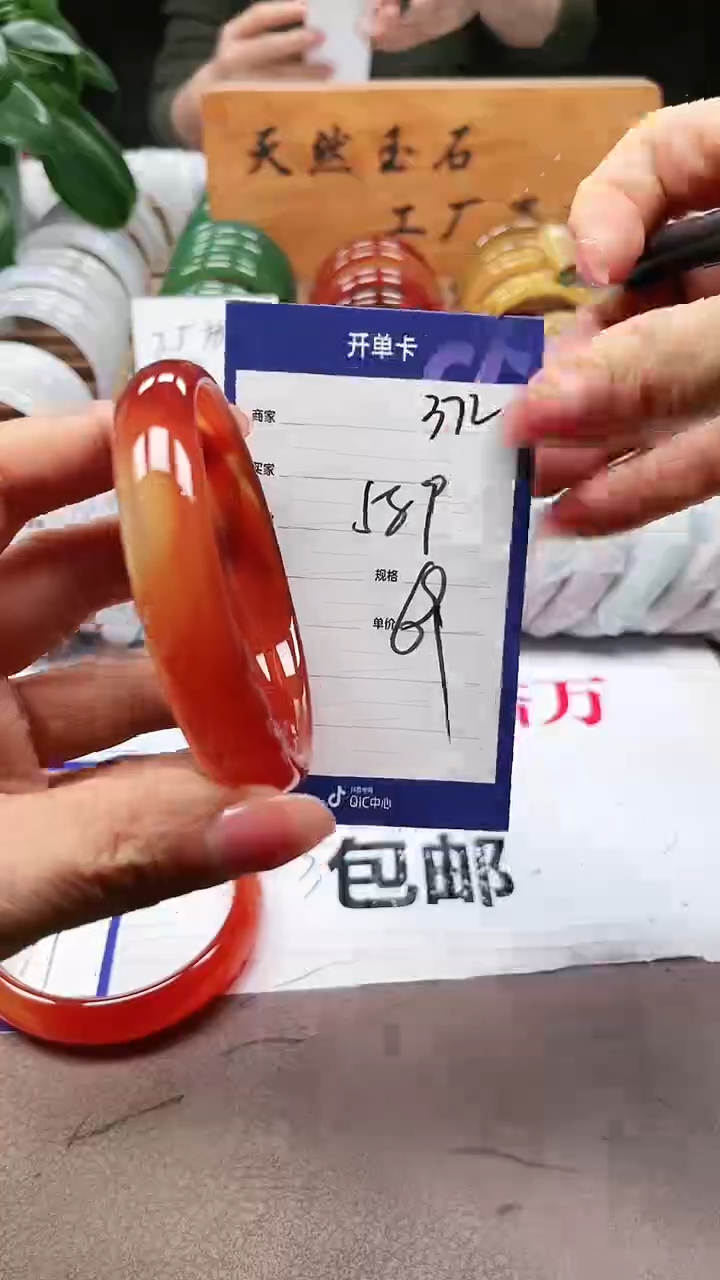 天然玉石
工厂
开单卡
商家 372
买家
589
规格
单价 69
抖音电商
QIC中心
万
包邮